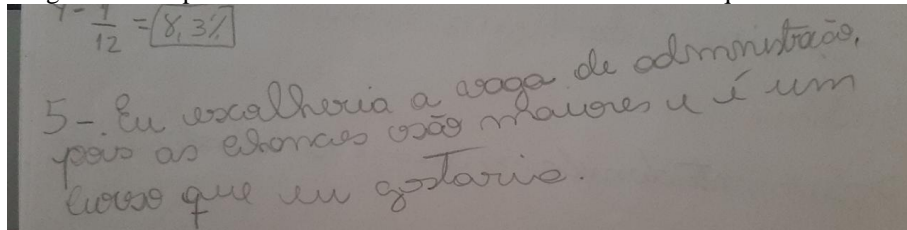 4 - 1/12 = 8,3%
5-. Eu escolheria a vaga de administracão,
pois as chances são maiores e é um
curso que eu gostaria.